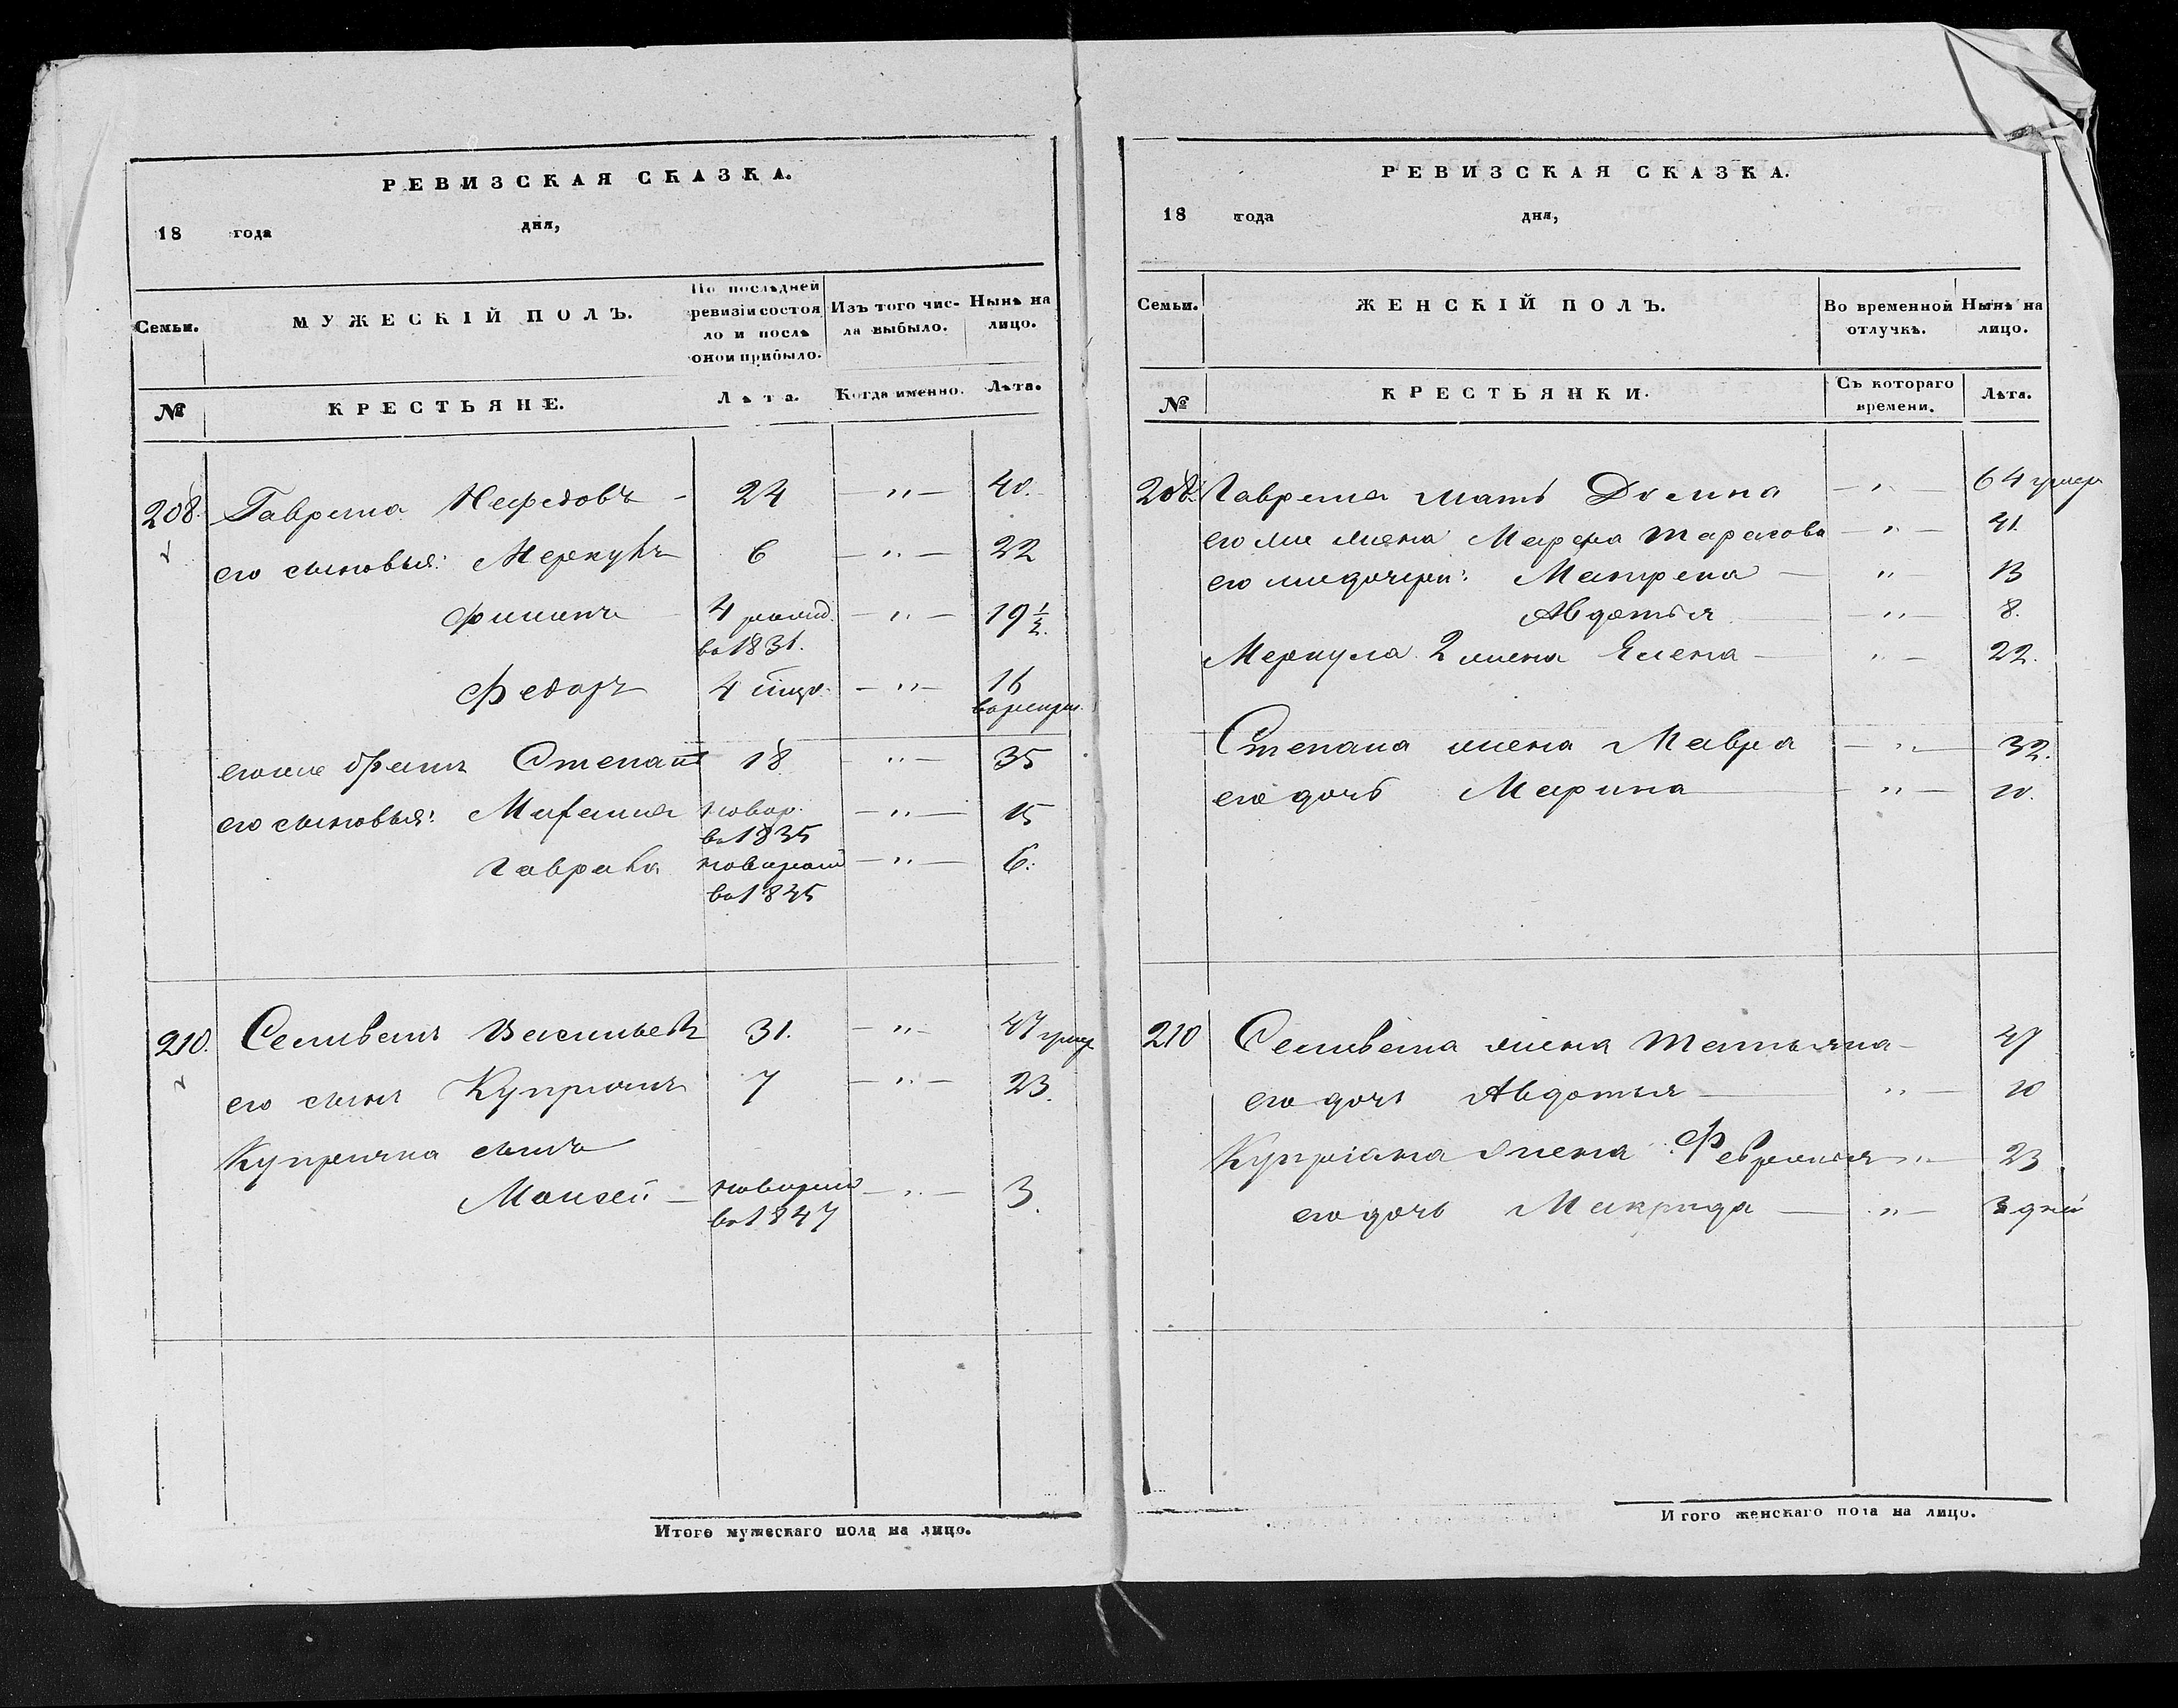 РЕВИЗСКАЯ СКАЗКА.
18 года дня,
Семьи. МУЖЕСКІЙ ПОЛЪ. По последней ревизіи состояло и послѣ оной прибыло. Изъ того числа выбыло. Нынѣ на лицо.
№ КРЕСТЬЯНЕ. Лѣта. Когда именно. Лѣта.
208. Гаврила Нефедовъ - 24 — " — 40.
его сыновья: Меркулъ 6 — " — 22
Филипъ 4 — " — 19 1/2.
во 1831.
Федоръ 4 — " — 16
егоже братъ Степанъ 18 " — 35
его сыновья: — " — 15
во 1835
Гаврила — " — 6.
во 1845
210. Селиванъ Васильевъ 31. — " — 47 умер
его сынъ Купріянъ 7 — " — 23.
Купріяна сынъ
Моисей — — " — 3.
во 1847
Итого мужескаго пола на лицо.
РЕВИЗСКАЯ СКАЗКА.
18 года дня,
Семьи. ЖЕНСКІЙ ПОЛЪ. Во временной отлучкѣ. Нынѣ на лицо.
№ КРЕСТЬЯНКИ. Съ котораго времени. Лѣта.
208. Гаврила мать Домна — " — 64 умер
его же жена Марфа Тарасова — " — 41.
его же дочери: Матрена — " — 13
Авдотья — " — 8.
Меркула 2 жена Елена — " — 22.
Степана жена Мавра — " — 32.
его дочь Марина — " — 10.
210 Селивана жена Татьяна — 47
его дочь Авдотья — " — 10
Купріана жена Февронья " — 23
его дочь Макрида — " — 3 дни
Итого женскаго пола на лицо.